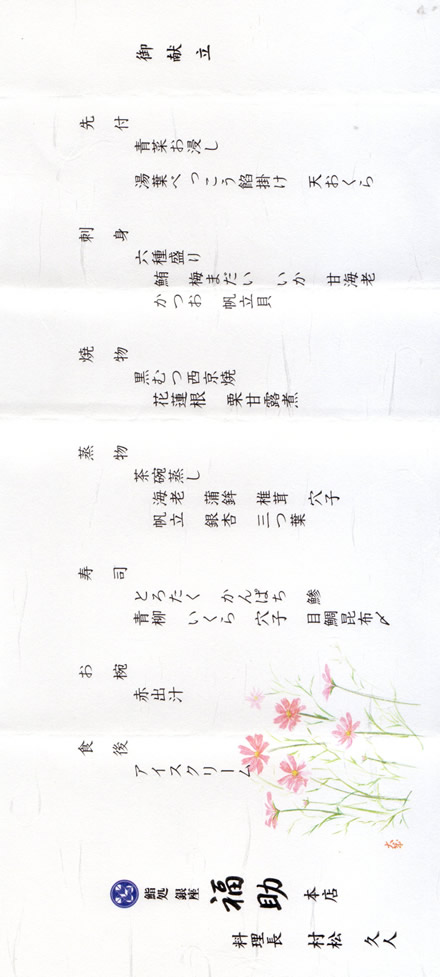 御献立
先付
青菜お浸し
湯葉べっこう餡掛け 天おくら
刺身
六種盛り
鮪 梅まだい いか 甘海老
かつお 帆立貝
焼物
黒むつ西京焼
花蓮根 栗甘露煮
蒸物
茶碗蒸し
海老 蒲鉾 椎茸 穴子
帆立 銀杏 三つ葉
寿司
とろたく かんぱち 鯵
青柳 いくら 穴子 目鯛昆布〆
お椀
赤出汁
食後
アイスクリーム
鮨処 銀座 福助 本店
料理長 村松 久人